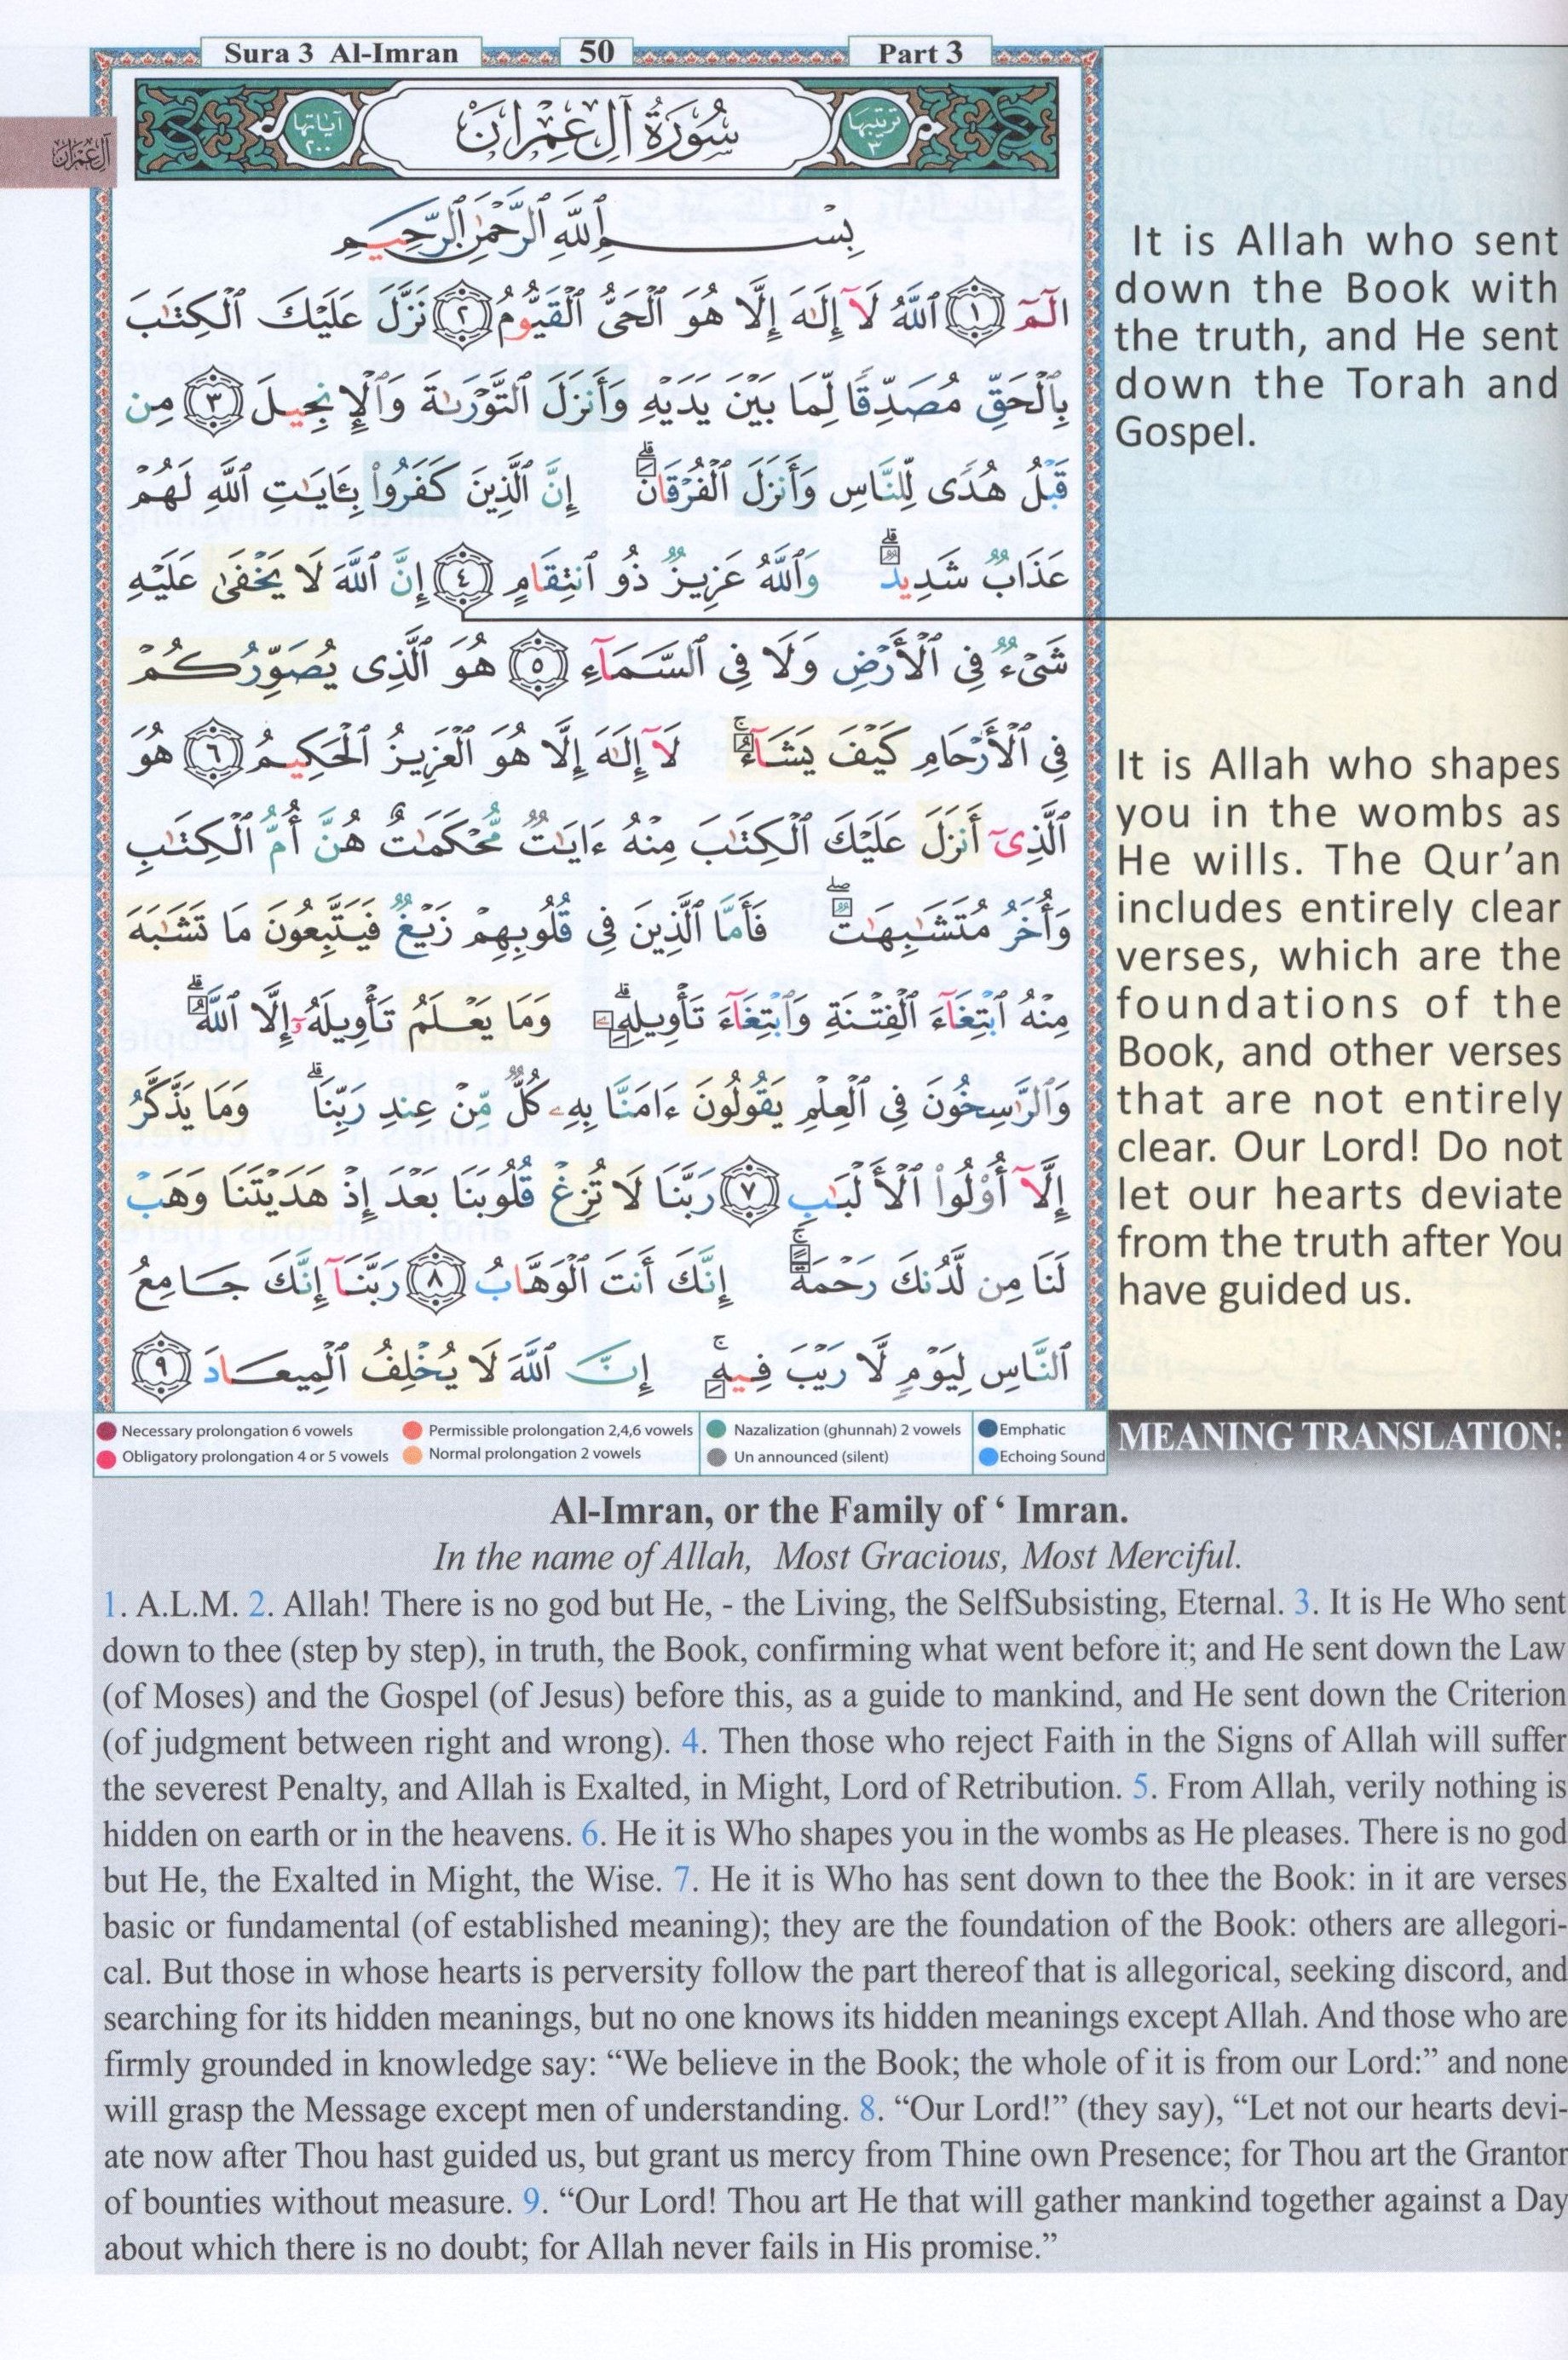 Sura 3 Al-Imran
50
Part 3
آل عمران
ترتيبها ٣
سُورَةُ آلِ عِمْرَانَ
آياتها ٢٠٠
بِسْمِ ٱللَّهِ ٱلرَّحْمَٰنِ ٱلرَّحِيمِ
الٓمٓ ١ ٱللَّهُ لَآ إِلَٰهَ إِلَّا هُوَ ٱلْحَىُّ ٱلْقَيُّومُ ٢ نَزَّلَ عَلَيْكَ ٱلْكِتَٰبَ
بِٱلْحَقِّ مُصَدِّقًا لِّمَا بَيْنَ يَدَيْهِ وَأَنزَلَ ٱلتَّوْرَىٰةَ وَٱلْإِنجِيلَ ٣ مِن
قَبْلُ هُدًى لِّلنَّاسِ وَأَنزَلَ ٱلْفُرْقَانَ ۗ إِنَّ ٱلَّذِينَ كَفَرُوا۟ بِـَٔايَٰتِ ٱللَّهِ لَهُمْ
عَذَابٌ شَدِيدٌ ۗ وَٱللَّهُ عَزِيزٌ ذُو ٱنتِقَامٍ ٤ إِنَّ ٱللَّهَ لَا يَخْفَىٰ عَلَيْهِ
شَىْءٌ فِى ٱلْأَرْضِ وَلَا فِى ٱلسَّمَآءِ ٥ هُوَ ٱلَّذِى يُصَوِّرُكُمْ
فِى ٱلْأَرْحَامِ كَيْفَ يَشَآءُ ۚ لَآ إِلَٰهَ إِلَّا هُوَ ٱلْعَزِيزُ ٱلْحَكِيمُ ٦ هُوَ
ٱلَّذِىٓ أَنزَلَ عَلَيْكَ ٱلْكِتَٰبَ مِنْهُ ءَايَٰتٌ مُّحْكَمَٰتٌ هُنَّ أُمُّ ٱلْكِتَٰبِ
وَأُخَرُ مُتَشَٰبِهَٰتٌ ۖ فَأَمَّا ٱلَّذِينَ فِى قُلُوبِهِمْ زَيْغٌ فَيَتَّبِعُونَ مَا تَشَٰبَهَ
مِنْهُ ٱبْتِغَآءَ ٱلْفِتْنَةِ وَٱبْتِغَآءَ تَأْوِيلِهِۦ ۗ وَمَا يَعْلَمُ تَأْوِيلَهُۥٓ إِلَّا ٱللَّهُ ۗ
وَٱلرَّٰسِخُونَ فِى ٱلْعِلْمِ يَقُولُونَ ءَامَنَّا بِهِۦ كُلٌّ مِّنْ عِندِ رَبِّنَا ۗ وَمَا يَذَّكَّرُ
إِلَّآ أُو۟لُوا۟ ٱلْأَلْبَٰبِ ٧ رَبَّنَا لَا تُزِغْ قُلُوبَنَا بَعْدَ إِذْ هَدَيْتَنَا وَهَبْ
لَنَا مِن لَّدُنكَ رَحْمَةً ۚ إِنَّكَ أَنتَ ٱلْوَهَّابُ ٨ رَبَّنَآ إِنَّكَ جَامِعُ
ٱلنَّاسِ لِيَوْمٍ لَّا رَيْبَ فِيهِ ۚ إِنَّ ٱللَّهَ لَا يُخْلِفُ ٱلْمِيعَادَ ٩
It is Allah who sent
down the Book with
the truth, and He sent
down the Torah and
Gospel.
It is Allah who shapes
you in the wombs as
He wills. The Qur’an
includes entirely clear
verses, which are the
foundations of the
Book, and other verses
that are not entirely
clear. Our Lord! Do not
let our hearts deviate
from the truth after You
have guided us.
Necessary prolongation 6 vowels
Permissible prolongation 2,4,6 vowels
Nazalization (ghunnah) 2 vowels
Emphatic
Obligatory prolongation 4 or 5 vowels
Normal prolongation 2 vowels
Un announced (silent)
Echoing Sound
MEANING TRANSLATION:
Al-Imran, or the Family of ‘ Imran.
In the name of Allah, Most Gracious, Most Merciful.
1. A.L.M. 2. Allah! There is no god but He, - the Living, the SelfSubsisting, Eternal. 3. It is He Who sent
down to thee (step by step), in truth, the Book, confirming what went before it; and He sent down the Law
(of Moses) and the Gospel (of Jesus) before this, as a guide to mankind, and He sent down the Criterion
(of judgment between right and wrong). 4. Then those who reject Faith in the Signs of Allah will suffer
the severest Penalty, and Allah is Exalted, in Might, Lord of Retribution. 5. From Allah, verily nothing is
hidden on earth or in the heavens. 6. He it is Who shapes you in the wombs as He pleases. There is no god
but He, the Exalted in Might, the Wise. 7. He it is Who has sent down to thee the Book: in it are verses
basic or fundamental (of established meaning); they are the foundation of the Book: others are allegori-
cal. But those in whose hearts is perversity follow the part thereof that is allegorical, seeking discord, and
searching for its hidden meanings, but no one knows its hidden meanings except Allah. And those who are
firmly grounded in knowledge say: “We believe in the Book; the whole of it is from our Lord:” and none
will grasp the Message except men of understanding. 8. “Our Lord!” (they say), “Let not our hearts devi-
ate now after Thou hast guided us, but grant us mercy from Thine own Presence; for Thou art the Grantor
of bounties without measure. 9. “Our Lord! Thou art He that will gather mankind together against a Day
about which there is no doubt; for Allah never fails in His promise.”